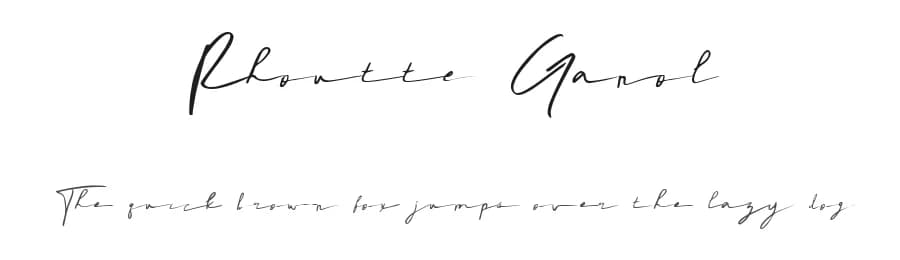 Rhoutte Ganol
The quick brown fox jumps over the lazy dog